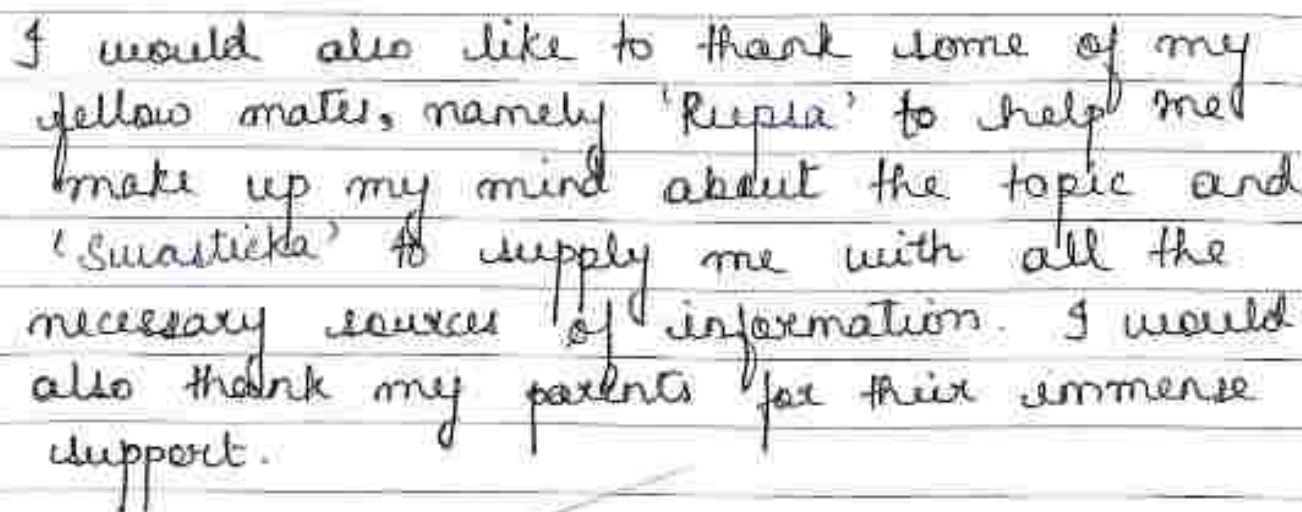 I would also like to thank some of my
fellow mates, namely 'Rupsa' to help me
make up my mind about the topic and
'Swasticka' to supply me with all the
necessary sources of information. I would
also thank my parents for their immense
support.